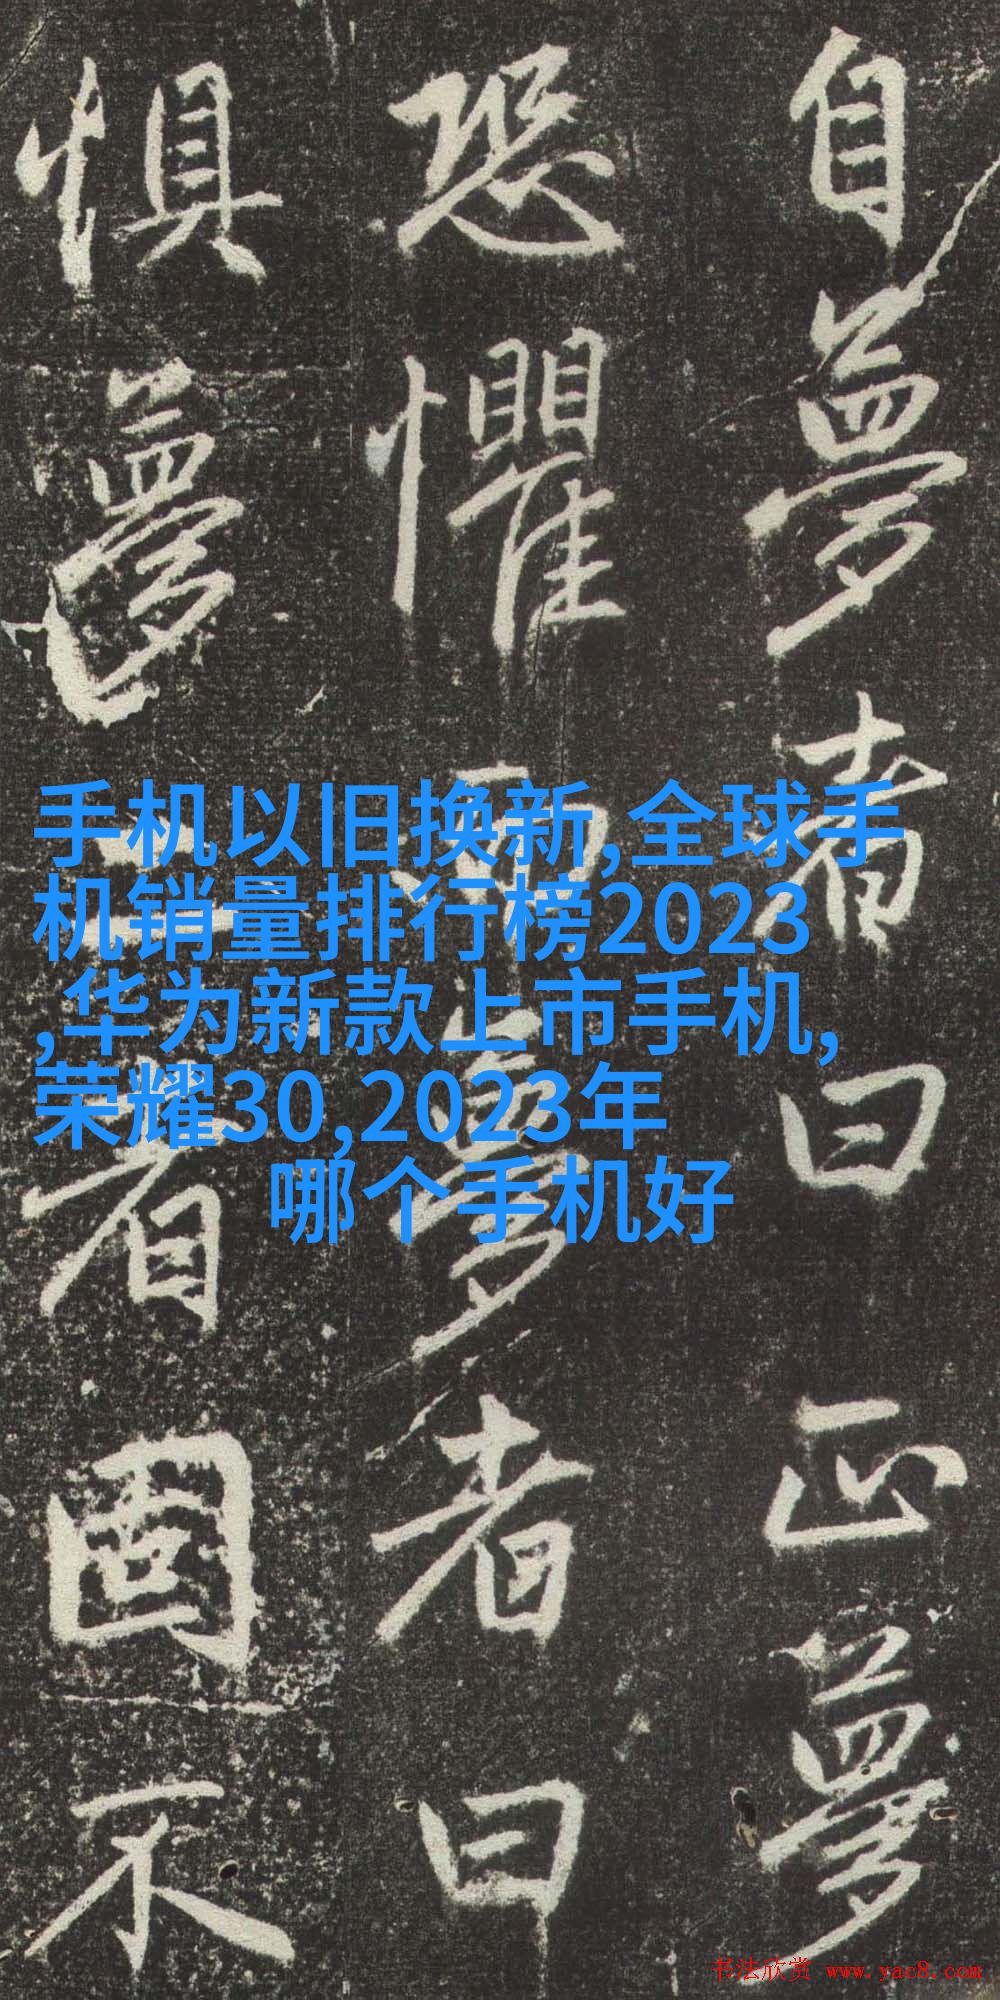 自夢者曰正夢
恐懼而夢者曰
惧夢者固不
手机以旧换新,全球手
机销量排行榜2023
,华为新款上市手机,
荣耀30,2023年
哪个手机好
书法欣赏 www.yac8.com